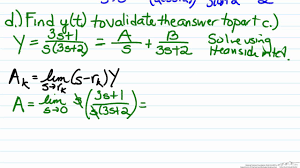 d.) Find y(t) to validate the answer to part c.)
Y = \frac{3s+1}{s(3s+2)} = \frac{A}{s} + \frac{B}{3s+2} Solve using
Heaviside
A_k = \lim_{s→r_k} (s-r_k) Y
A = \lim_{s→0} s \left( \frac{3s+1}{s(3s+2)} \right) =